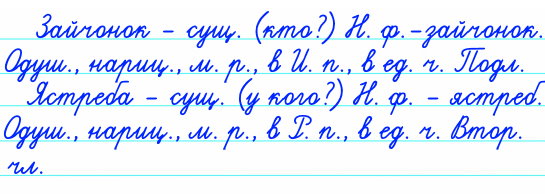 Зайчонок - сущ. (кто?) Н. ф.-зайчонок.
Одуш., нариц., м. р., в И. п., в ед. ч. Подл.
Ястреба - сущ. (у кого?) Н. ф. - ястреб.
Одуш., нариц., м. р., в Р. п., в ед. ч. Втор.
чл.